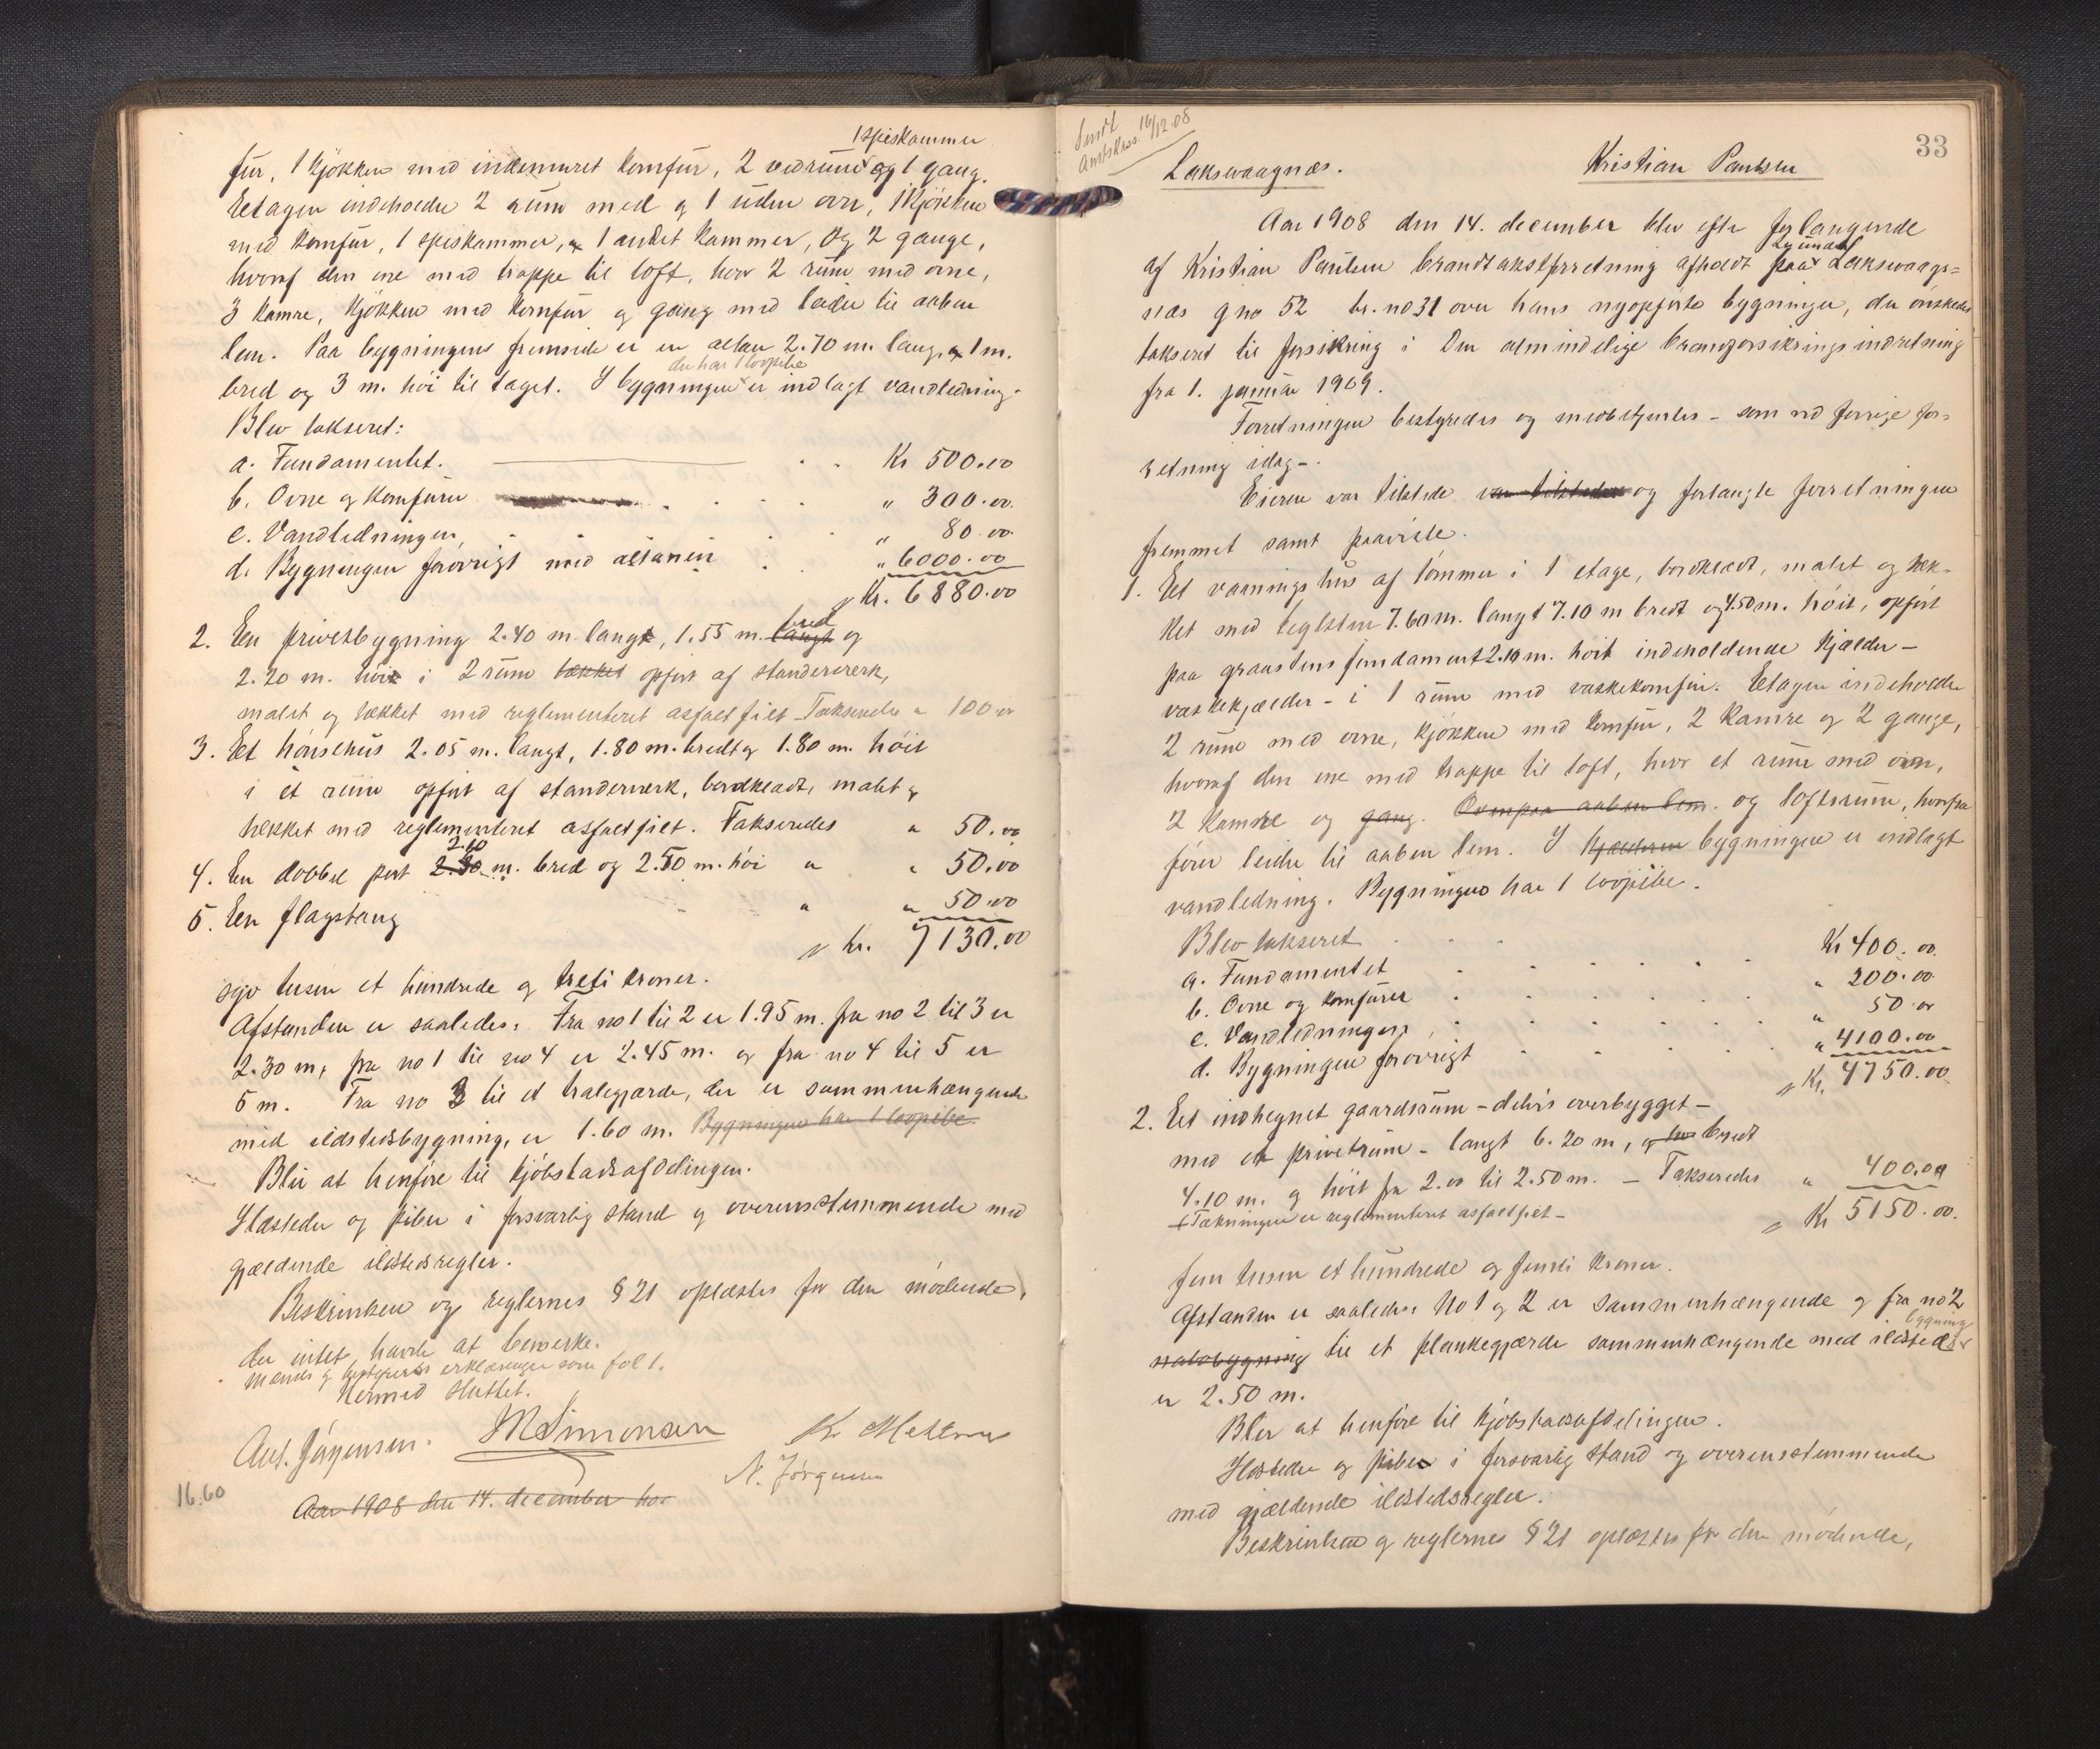 1 spiskammer
fur, 1 kjøkken med indemuret komfur, 2 vedrum og 1 gang.
Etagen indeholder 2 rum med og 1 uden ovn, 1 kjøkken
med komfur, 1 spiskammer, 1 andet kammer, og 2 gange,
hvoraf den ene med trappe til loft, hvor 2 rum med ovne,
3 kamre, kjøkken med komfur og gang med leider til aaben
lem. Paa bygningens fremside er en altan 2.70 m. lang, 1 m.
der har 1 løopibe
bred og 3 m. høi til taget. I bygningen er indlagt vandledning.
Blev takseret:
a. Fundamentet. Kr 500.00
b. Ovne og komfurer " 300.00.
c. Vandledningen " 80.00
d. Bygningen forøvrigt med altanen " 6000.00
Kr. 6880.00
bred
2. Een privetbygning 2.40 m. lang, 1.55 m. langt og
2.20 m. høi i 2 rum tækket opført af standerverk,
malet og tækket med reglementeret asfaltfilt - Takseredes " 100.00
3. Et hønsehus 2.05 m. langt, 1.80 m. bredt og 1.80 m. høit
i et rum opført af standerverk, bordklædt, malet og
tækket med reglementeret asfaltfilt. Takseredes " 50.00
2.60
4. Een dobbel port m. bred og 2.50 m. høi " " 50.00
5. Een flagstang " " 50.00
Kr. 7130.00
syv tusen et hundrede og treti kroner.
Afstanden er saaledes: Fra no 1 til 2 er 1.95 m. fra no 2 til 3 er
2.30 m, fra no 1 til no 4 er 2.45 m. og fra no 4 til 5 er
5 m. Fra no 3 til et trælegjærde, der er sammenhængende
med ildstedsbygning, er 1.60 m. Bygningen har 1 løopibe.
Blir at henføre til kjøbstadsafdelingen.
Ildsteder og piber i forsvarlig stand og overensstemmende med
gjældende ildstedsregler.
Beskrivelsen og reglernes § 21 oplæstes for den mødende,
der intet havde at bemerke.
Mænds og bestyrers erklæringer som fol 1.
Hermed sluttet.
Ant. Jørgensen. M Simonsen
N. Jørgensen
16.60
Aar 1908 den 14. december hos
Sendt
Amtskass. 16/12.08
33
Lakswaagnæs. Kristian Paulsen
Aar 1908 den 14. december blev efter forlangende
af Kristian Paulsen brandtakstforretning afholdt paa Lakswaags=
næs gno 52 br. no 31 over hans nyopførte bygninger, der ønskedes
takseret til forsikring i Den almindelige brandforsikringsindretning
fra 1. januar 1909.
Forretningen bestyredes og medbetjentes - som ved forrige for=
retning idag -.
Eieren var tilstede var tilstede og forlangte forretningen
fremmet samt paaviste.
1. Et vaaningshus af tømmer i 1 etage, bordklædt, malet og tæk-
ket med teglsten 7.60 m. langt 7.10 m bredt og 4.50 m. høit, opført
paa graastens fundament 2.10 m. høit indeholdende kjælder -
vaskekjælder - i 1 rum med vaskekomfur. Etagen indeholder
2 rum med ovne, kjøkken med komfur, 2 kamre og 2 gange,
hvoraf den ene med trappe til loft, hvor et rum med ovn,
2 kamre og gang. Ovenpaa aaben lem. og loftsrum, hvorfra
fører leider til aaben lem. I kjælderen bygningen er indlagt
vandledning. Bygningen har 1 løopibe.
Blev takseret
a. Fundamentet Kr 400.00.
b. Ovne og komfurer " 200.00
c. Vandledningen " 50.00
d. Bygningen forøvrigt " 4100.00
Kr. 4750.00
2. Et indhegnet gaardsrum - delvis overbygget -
med et privetrum - langt 6.20 m, bredt
4.10 m. og høit fra 2.00 til 2.50 m. - Takseredes " 400.00
- Tækningen er reglementeret asfaltfilt - Kr 5150.00.
fem tusen et hundrede og femti kroner.
Afstanden er saaledes: No 1 og 2 er sammenhængende og fra no 2
bygning
til et plankegjærde sammenhængende med ildsteds
er 2.50 m.
Blir at henføre til kjøbstadsafdelingen.
Ildsteder og piber i forsvarlig stand og overensstemmende
med gjældende ildstedsregler.
Beskrivelsen og reglernes § 21 oplæstes for den mødende,